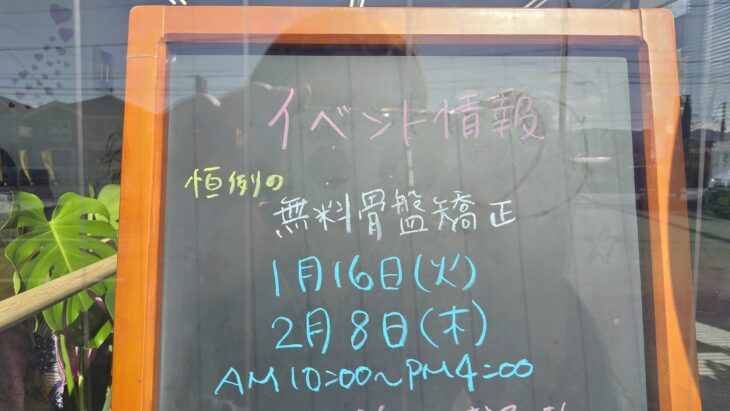 イベント情報
恒例の
無料骨盤矯正
1月16日(火)
2月8日(木)
AM10:00~PM4:00